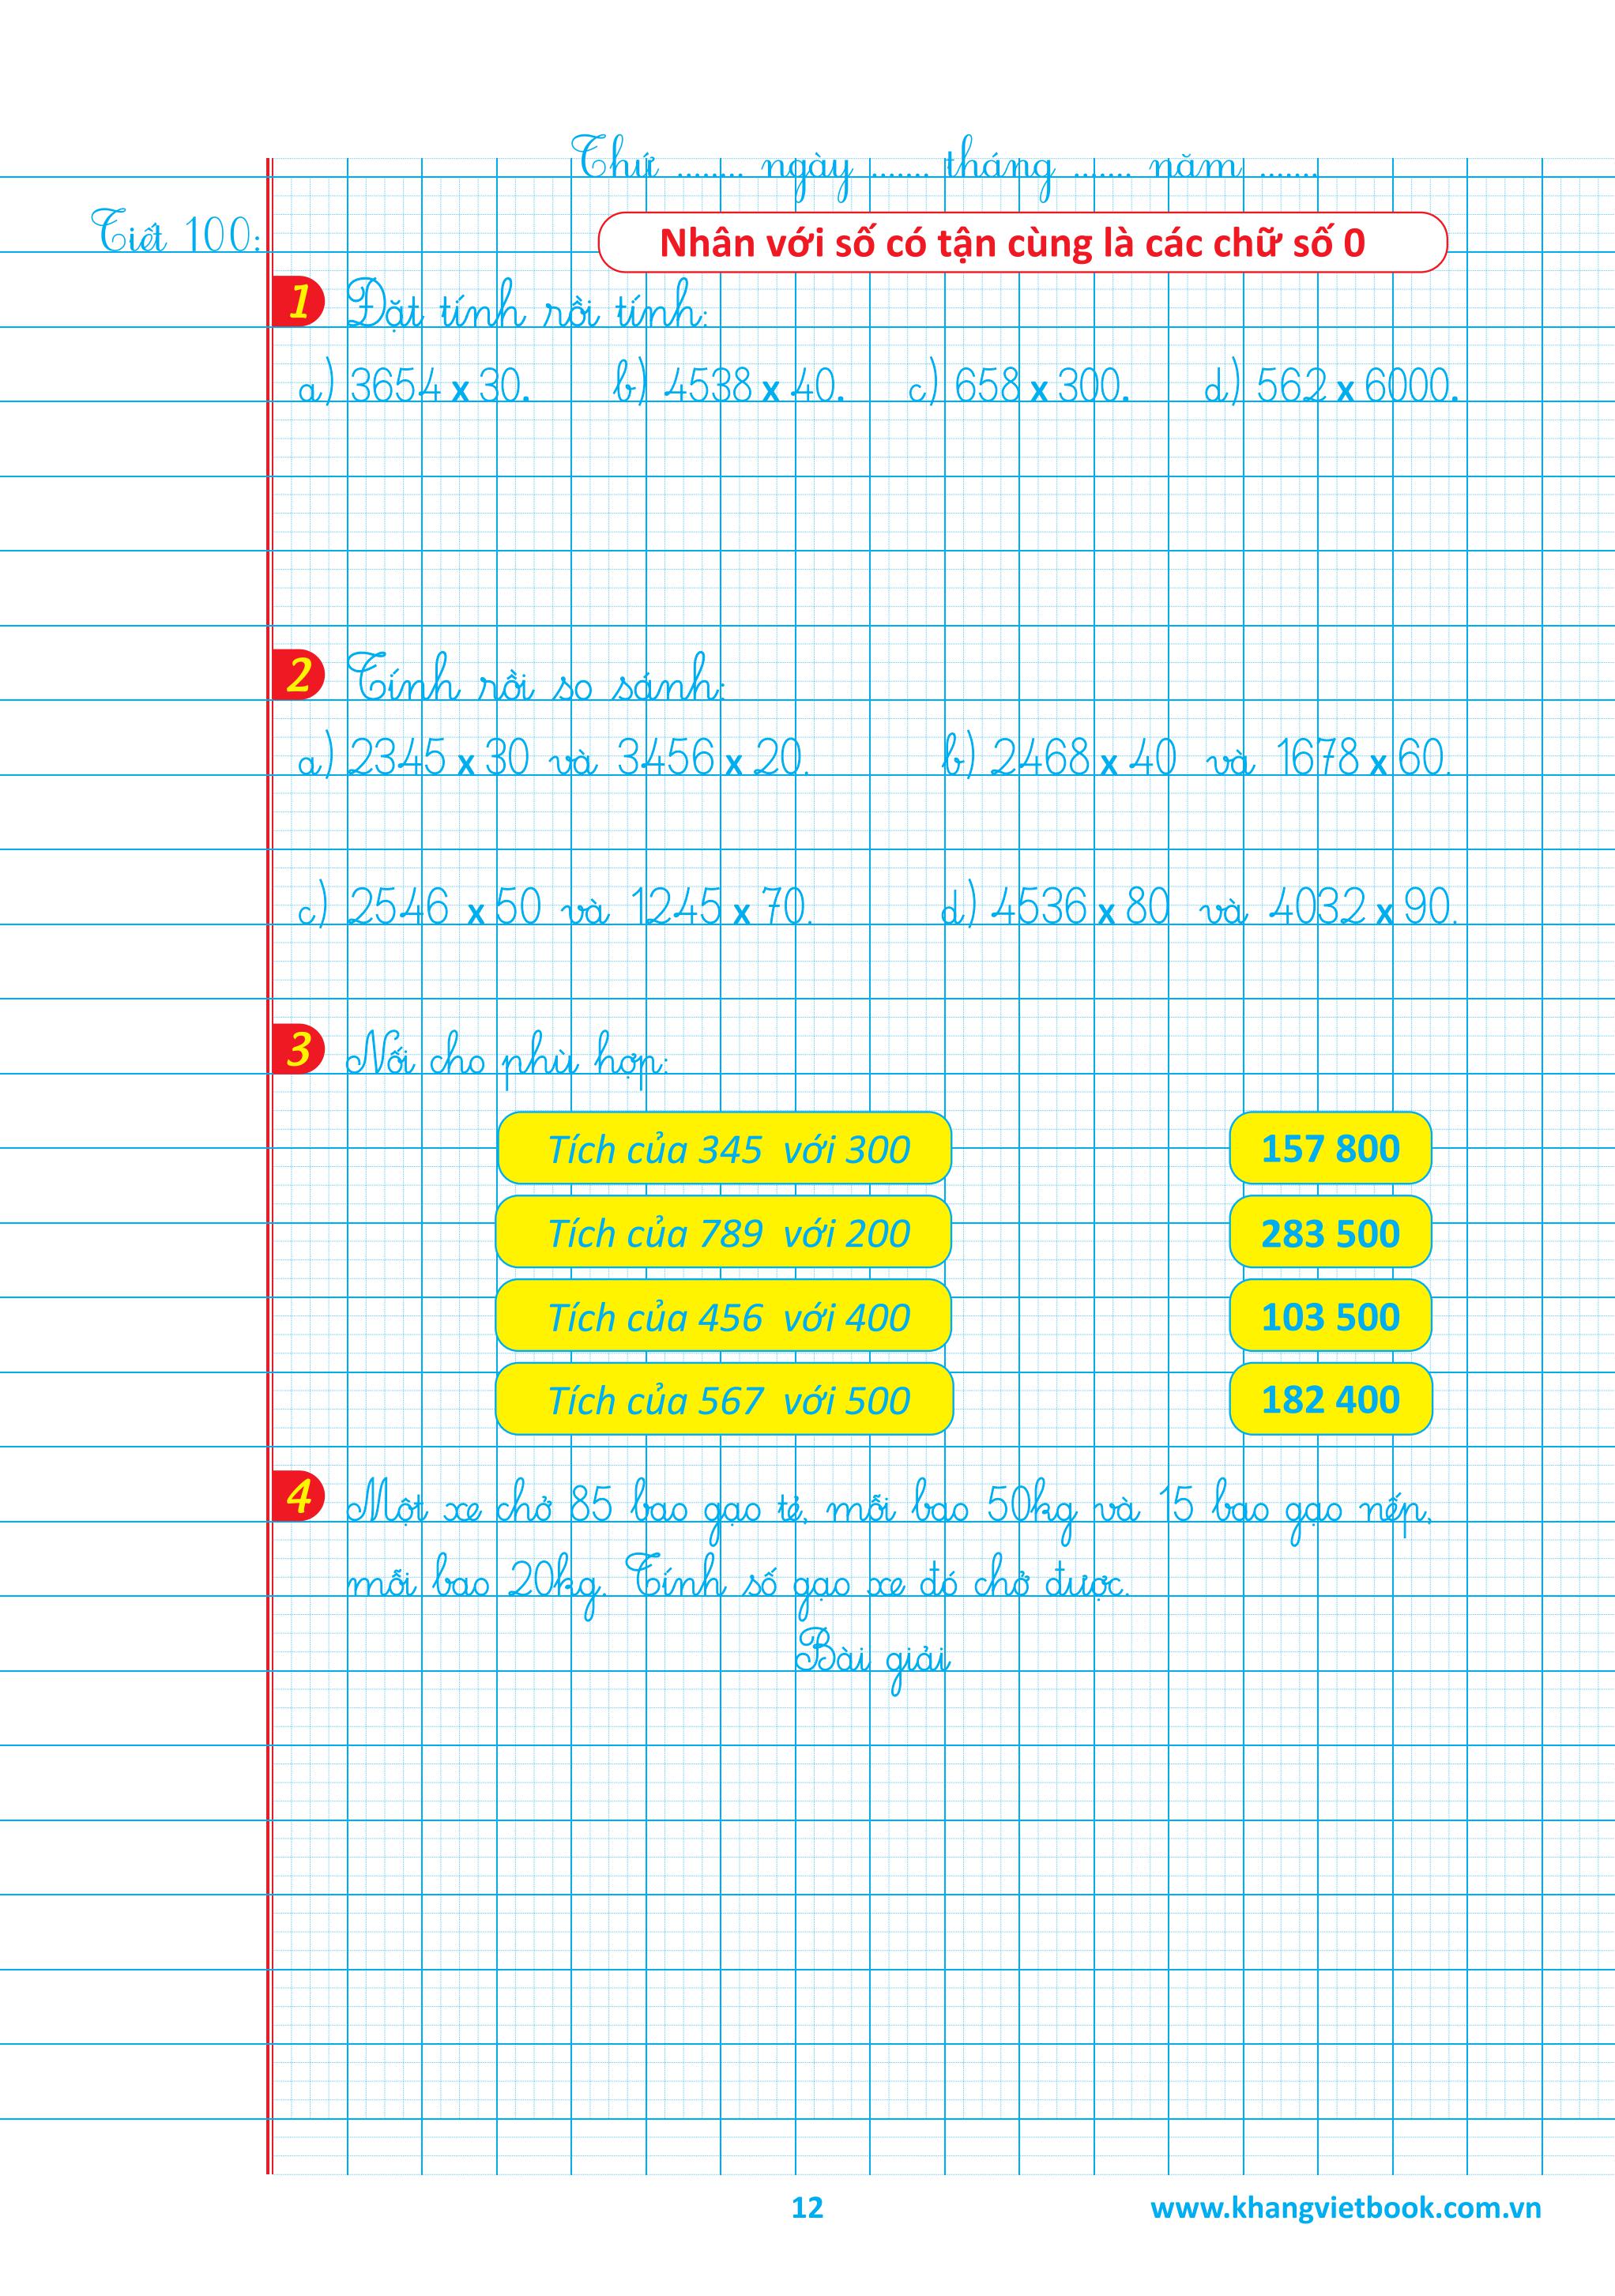 Thứ ........ ngày ....... tháng ....... năm .......
Tiết 100:
Nhân với số có tận cùng là các chữ số 0
1 Đặt tính rồi tính:
a) 3654 x 30. b) 4538 x 40. c) 658 x 300. d) 562 x 6000.
2 Tính rồi so sánh:
a) 2345 x 30 và 3456 x 20. b) 2468 x 40 và 1678 x 60.
c) 2546 x 50 và 1245 x 70. d) 4536 x 80 và 4032 x 90.
3 Nối cho phù hợp:
Tích của 345 với 300 157 800
Tích của 789 với 200 283 500
Tích của 456 với 400 103 500
Tích của 567 với 500 182 400
4 Một xe chở 85 bao gạo tẻ, mỗi bao 50kg và 15 bao gạo nếp,
mỗi bao 20kg. Tính số gạo xe đó chở được.
Bài giải
12 www.khangvietbook.com.vn